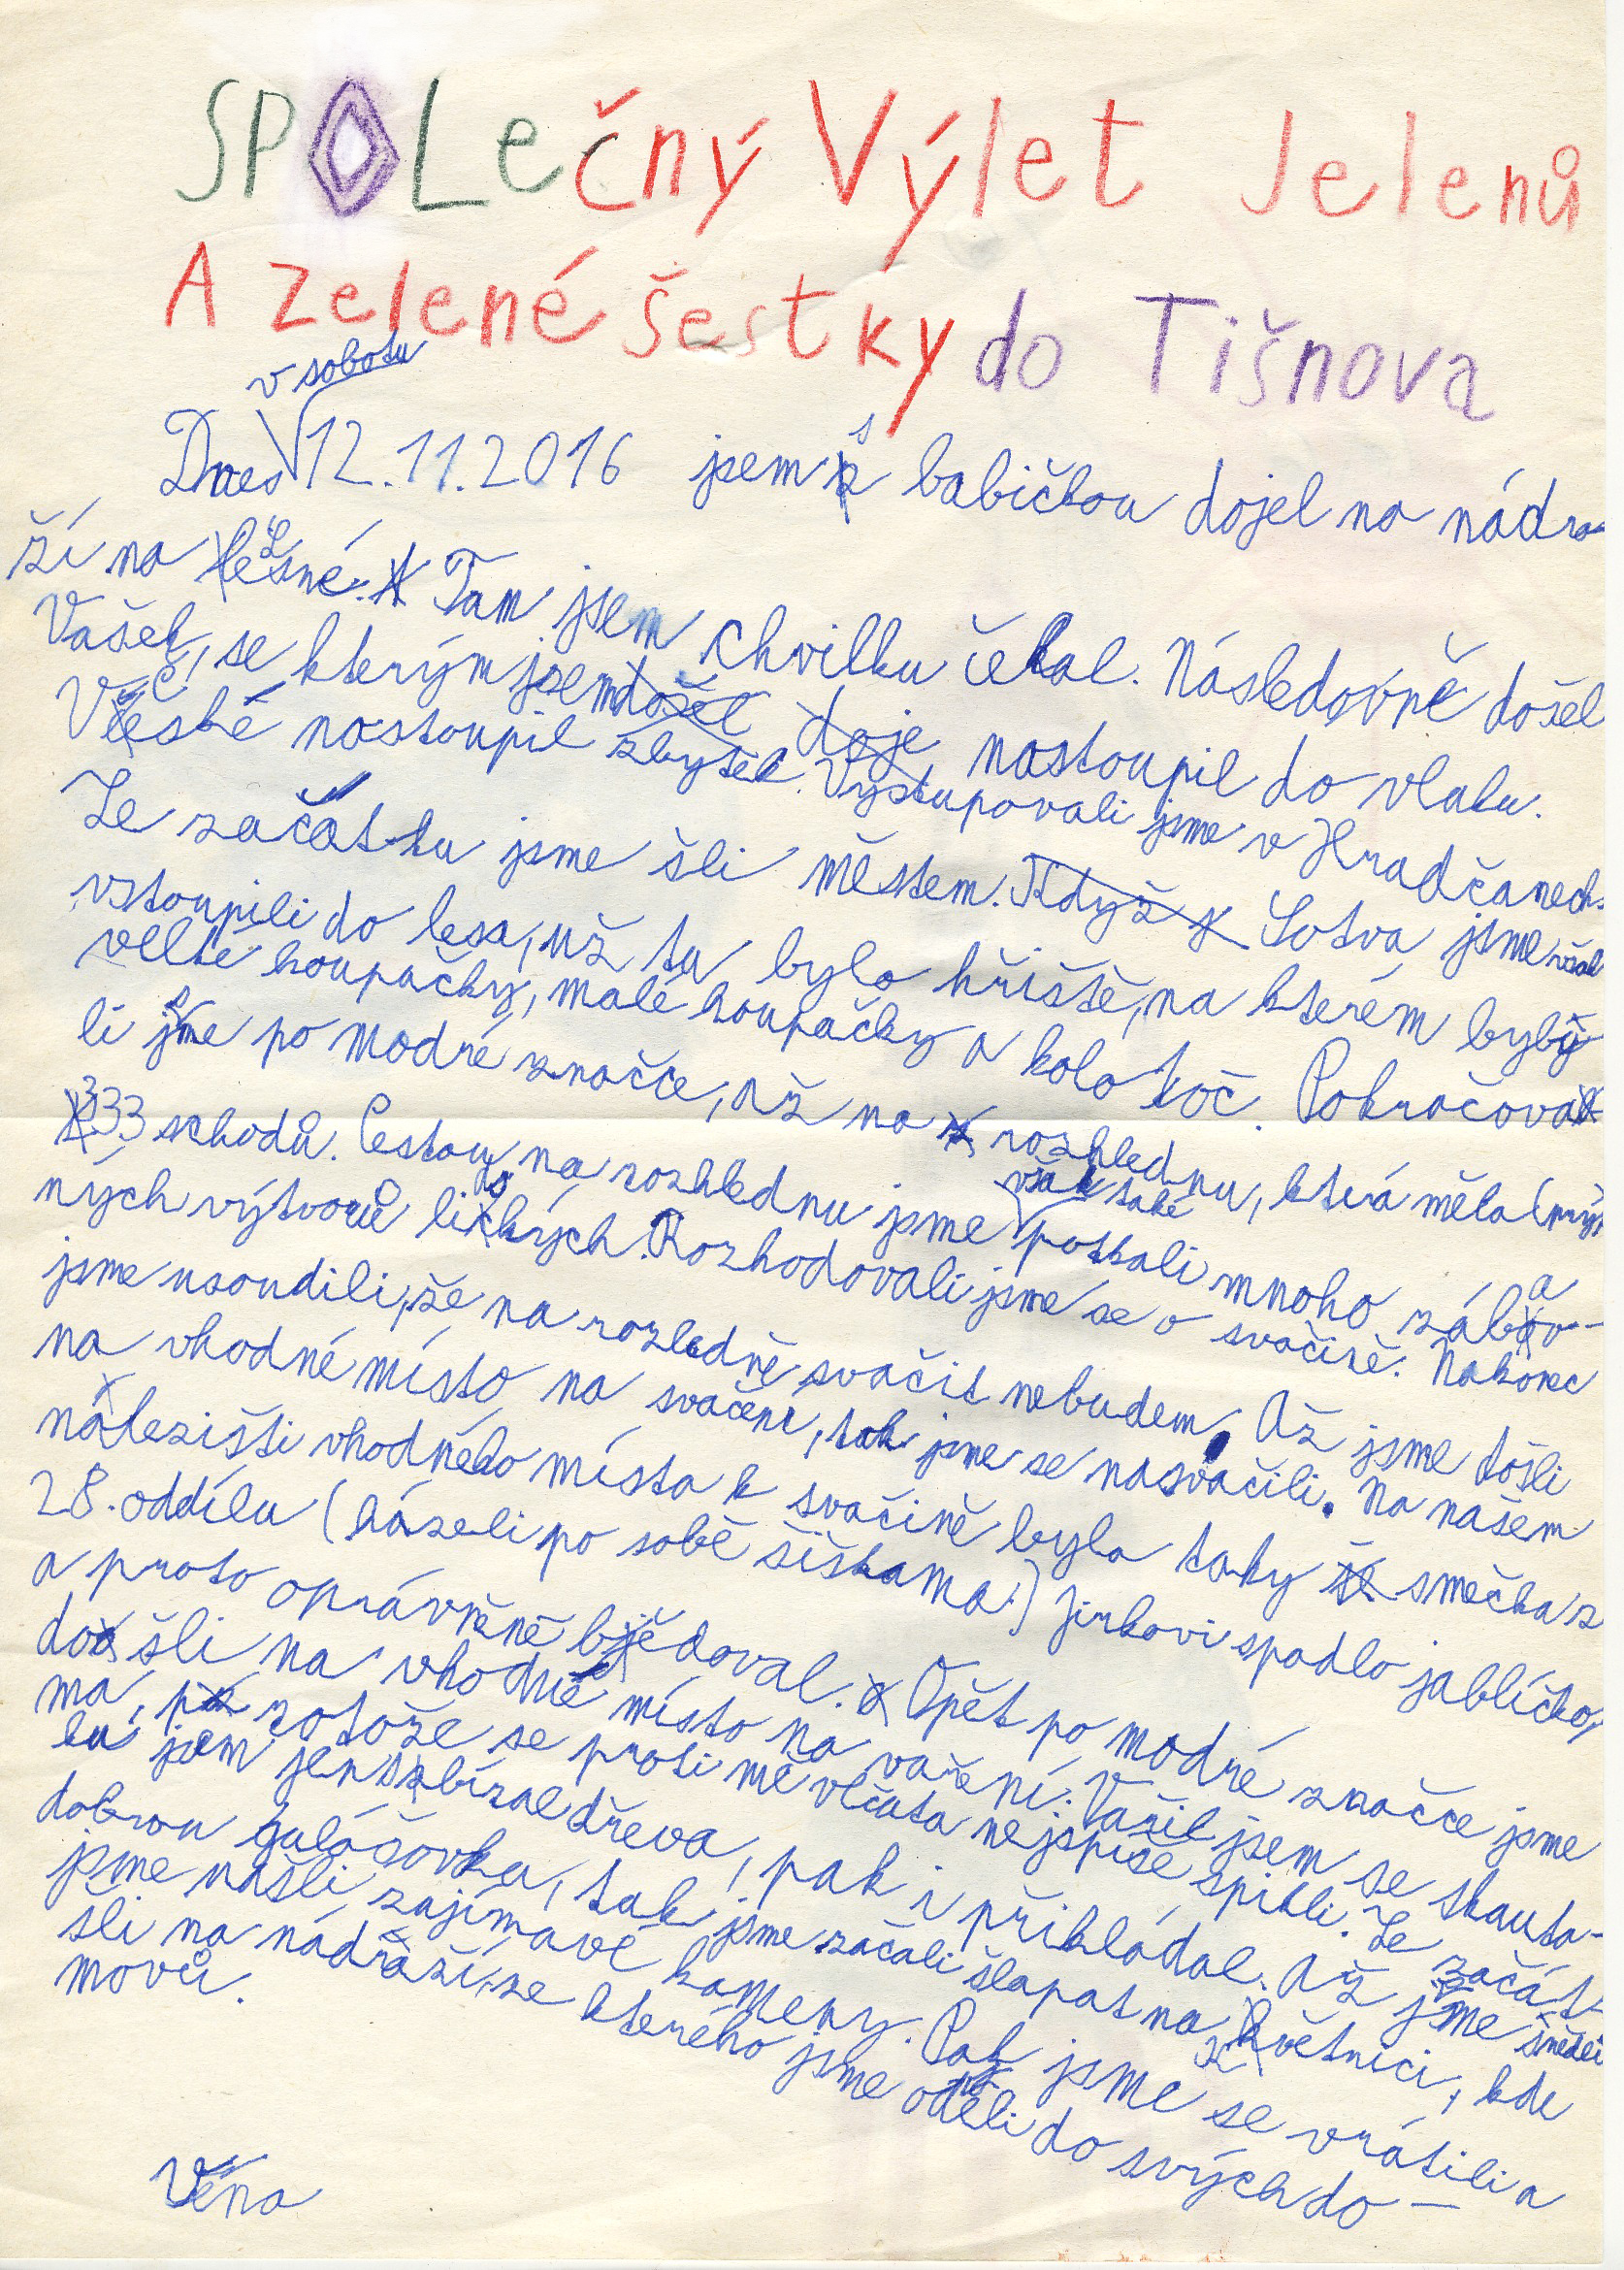 SPOLečný Výlet Jelenů
A zelené šestky do Tišnova
v sobotu
Dnes 12.11.2016 jsem s babičkou dojel na nádra-
ží na Lesné. Tam jsem chvilku čekal. Následovně došel
Vašek, se kterým jsem nastoupil do vlaku.
V České nastoupil zbytek. Vystupovali jsme v Hradčanech.
Ze začátku jsme šli městem. Sotva jsme však
vstoupili do lesa, už tu bylo hřiště, na kterém byly
velké houpačky, malé houpačky a kolotoč. Pokračova
li jsme po modré značce, až na rozhlednu, která měla (prý)
333 schodů. Cestou na rozhlednu jsme však také potkali mnoho zábav-
ných výtvorů lidských. Rozhodovali jsme se o svačině. Nakonec
jsme usoudili, že na rozledně svačit nebudem. Až jsme došli
na vhodné místo na svačení, tak jsme se nasvačili. Na našem
nálezišti vhodného místa k svačině byla taky smečka z
28. oddílu (házeli po sobě šiškama.) Jirkovi spadlo jablíčko,
a proto oprávněně bědoval. Opět po modré značce jsme
došli na vhodné místo na vaření. Vařil jsem se skauta-
ma, protože se proti mě vlčata nejspíše spikli. Ze začát-
ku jsem jen sbíral dřeva, pak i přikládal. Až jsme snědli
dobrou gulášovku, tak jsme začali šlapat na Květnici, kde
jsme našli zajímavé kameny. Pak jsme se vrátili a
šli na nádraží, ze kterého jsme odjeli do svých do-
movů.
Véna